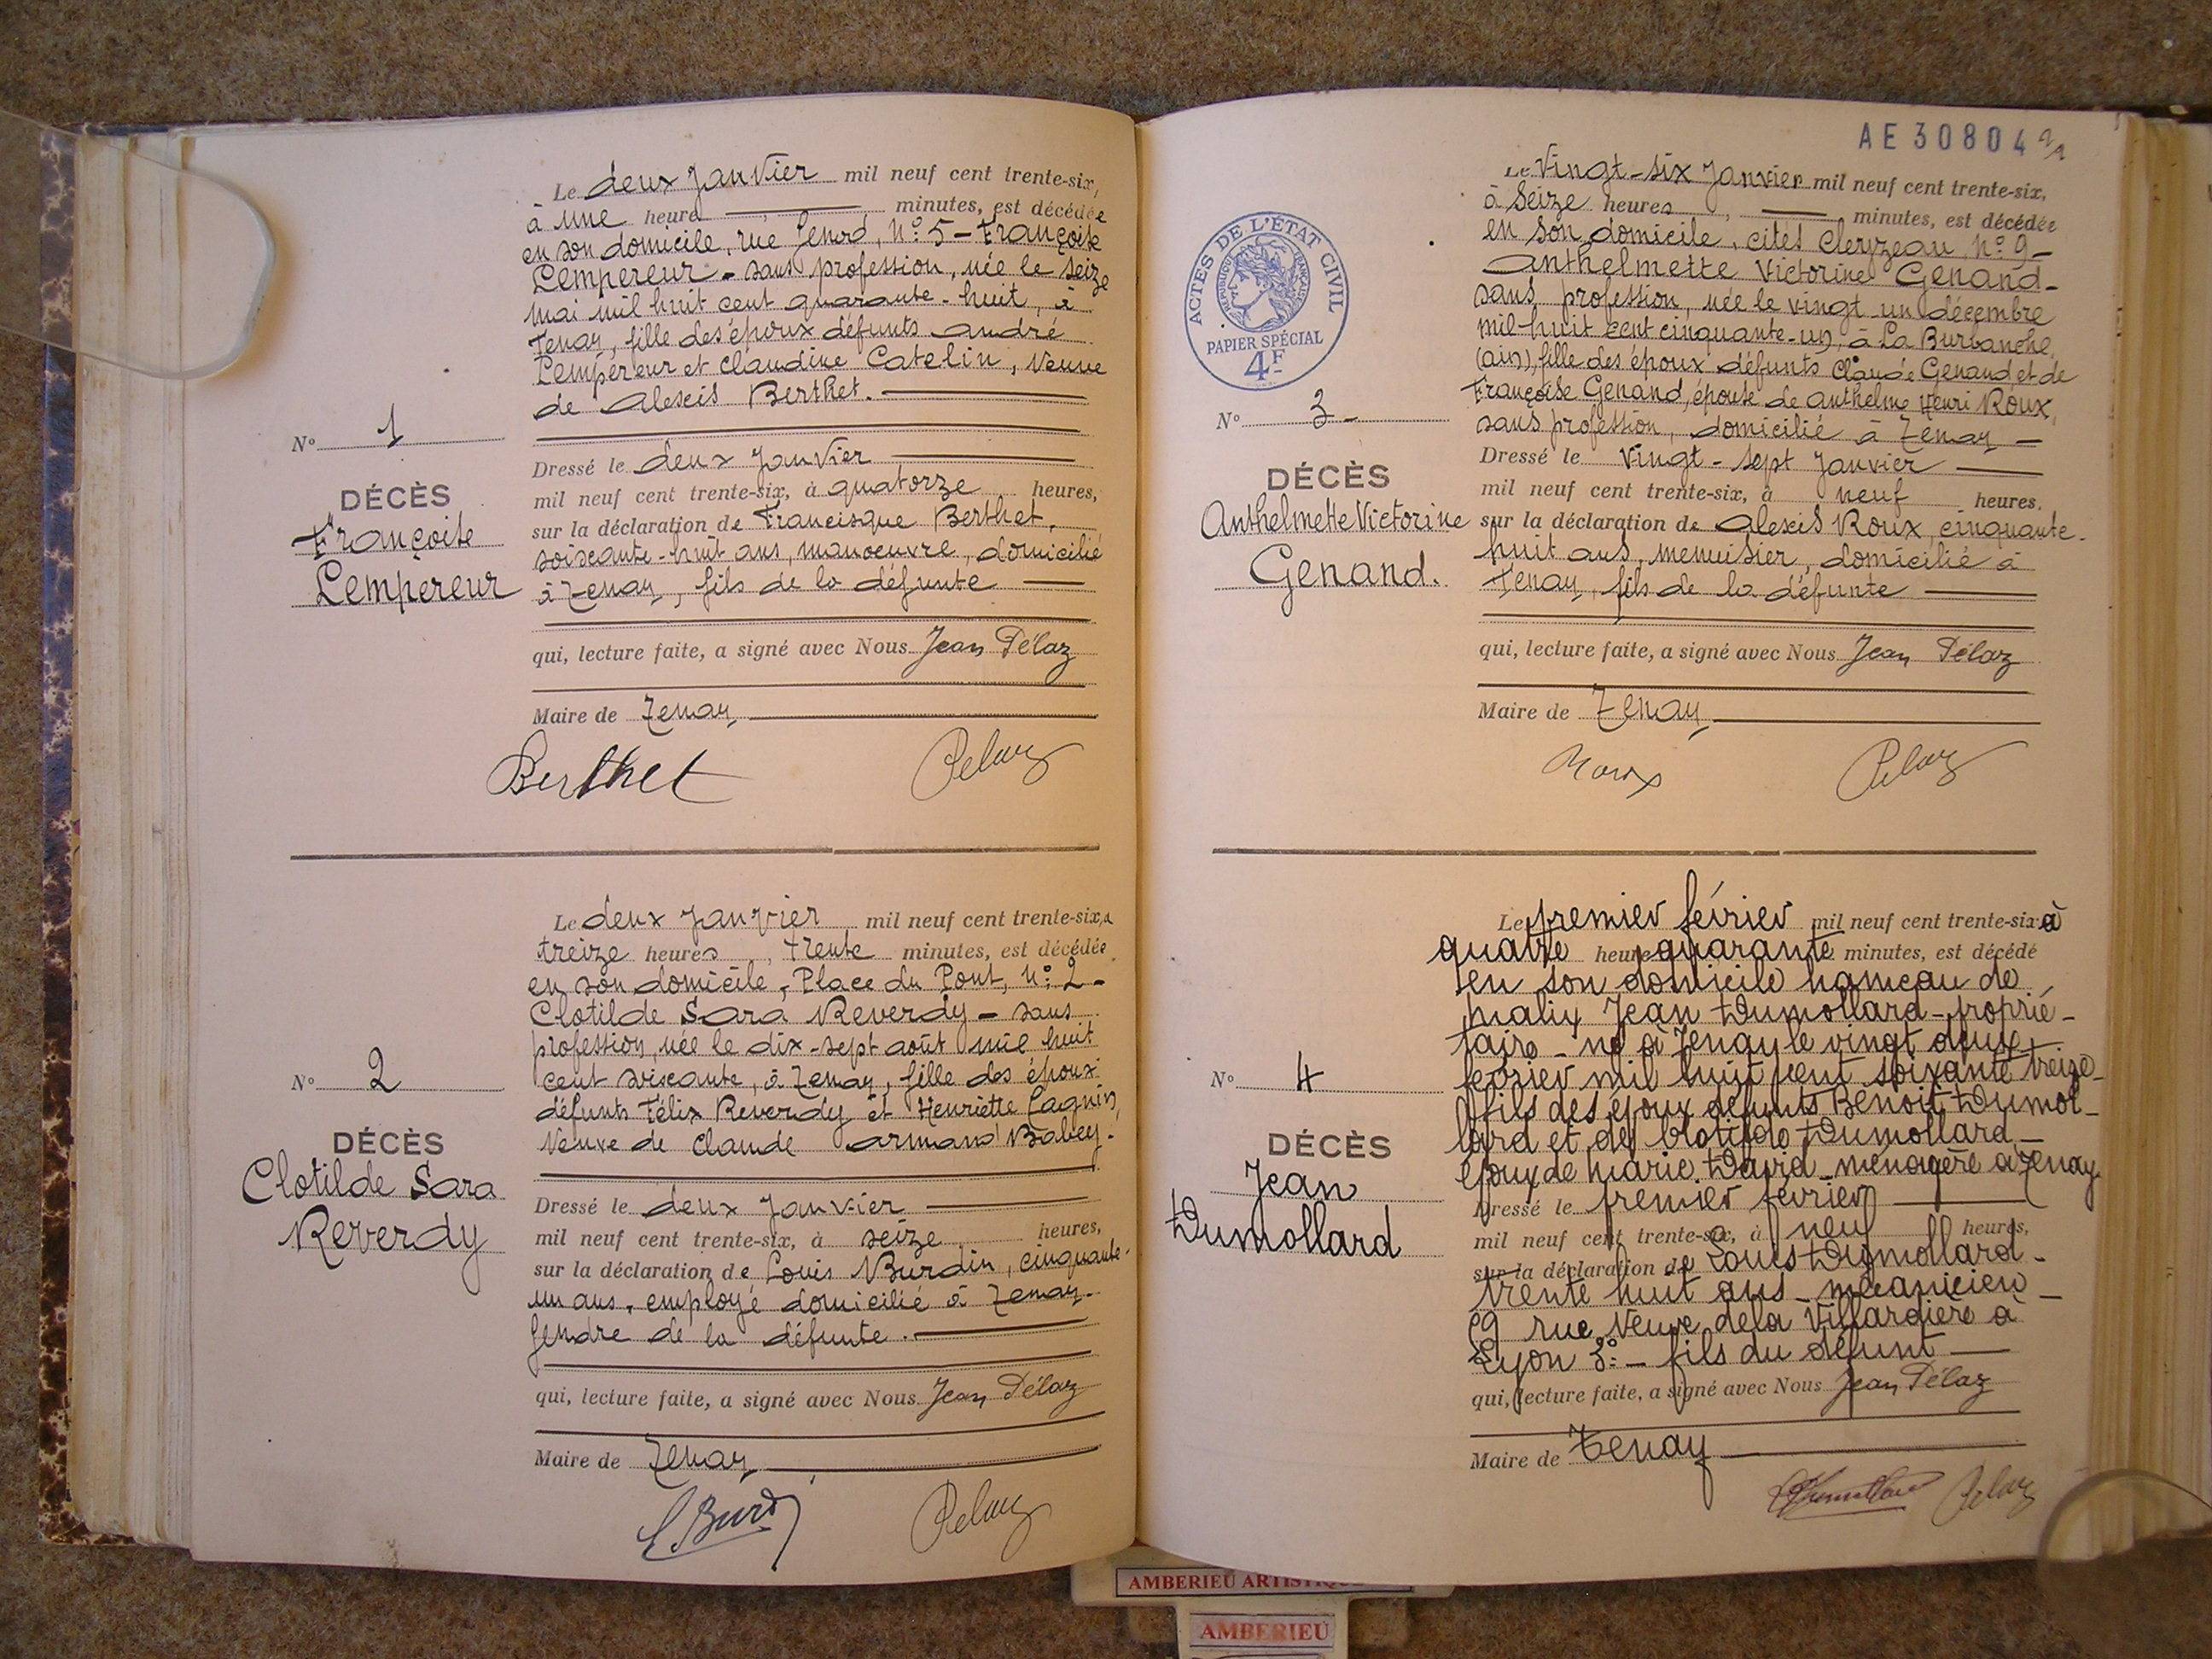 Le deux Janvier mil neuf cent trente-six,
à une heure minutes, est décédée
en son domicile, rue Genod, N° 5 - Françoise
Lempereur - sans profession, née le seize
mai mil huit cent quarante-huit, à
Tenay, fille des époux défunts André
Lempereur et Claudine Catelin, Veuve
de Alexis Berthet.
N° 1
DÉCÈS
Françoise
Lempereur
Dressé le deux Janvier
mil neuf cent trente-six, à quatorze heures,
sur la déclaration de Francisque Berthet,
soixante-huit ans, manoeuvre, domicilié
à Tenay, fils de la défunte
qui, lecture faite, a signé avec Nous Jean Pélaz
Maire de Tenay
Berthet Pelaz
Le deux Janvier mil neuf cent trente-six, à
treize heures, trente minutes, est décédée
en son domicile, Place du Pont, N° 2 -
Clotilde Sara Reverdy - sans
profession, née le dix-sept août mil huit
cent soixante, à Tenay, fille des époux
défunts Félix Reverdy et Henriette Gagnin,
Veuve de Claude Armand Babey.
N° 2
DÉCÈS
Clotilde Sara
Reverdy
Dressé le deux Janvier
mil neuf cent trente-six, à seize heures,
sur la déclaration de Louis Burdin, cinquante-
un ans, employé domicilié à Tenay.
gendre de la défunte.
qui, lecture faite, a signé avec Nous Jean Pélaz
Maire de Tenay
L Burdin Pelaz
AE 30804
Le Vingt-six Janvier mil neuf cent trente-six,
à Seize heures, minutes, est décédée
en son domicile, cités Clerzeau, N° 9 -
Anthelmette Victorine Genand -
sans profession, née le vingt un décembre
mil huit cent cinquante-un, à La Burbanche
(Ain), fille des époux défunts Claude Genand, et de
Françoise Genand, épouse de Anthelme Henri Roux,
sans profession, domicilié à Tenay -
ACTES DE L'ÉTAT CIVIL
RÉPUBLIQUE FRANÇAISE
PAPIER SPÉCIAL
4F
N° 3 -
DÉCÈS
Anthelmette Victorine
Genand.
Dressé le Vingt-sept Janvier
mil neuf cent trente-six, à neuf heures,
sur la déclaration de Alexis Roux, cinquante-
huit ans, menuisier, domicilié à
Tenay, fils de la défunte
qui, lecture faite, a signé avec Nous Jean Pélaz
Maire de Tenay
Roux Pelaz
Le premier février mil neuf cent trente-six à
quatre heure quarante minutes, est décédé
en son domicile hameau de
Malix Jean Dumollard - proprié-
taire - né à Tenay le vingt deux
février mil huit cent soixante treize -
fils des époux défunts Benoit Dumol-
lard et de Clotilde Dumollard -
époux de Marie David - ménagère à Tenay
N° 4
DÉCÈS
Jean
Dumollard
Dressé le premier février
mil neuf cent trente-six, à neuf heures,
sur la déclaration de Louis Dumollard -
trente huit ans - mécanicien -
69 rue Veuve de la Villardière à
Lyon 3° - fils du défunt
qui, lecture faite, a signé avec Nous Jean Pélaz
Maire de Tenay
Dumollard Pelaz
AMBERIEU ARTISTIQUE
AMBERIEU